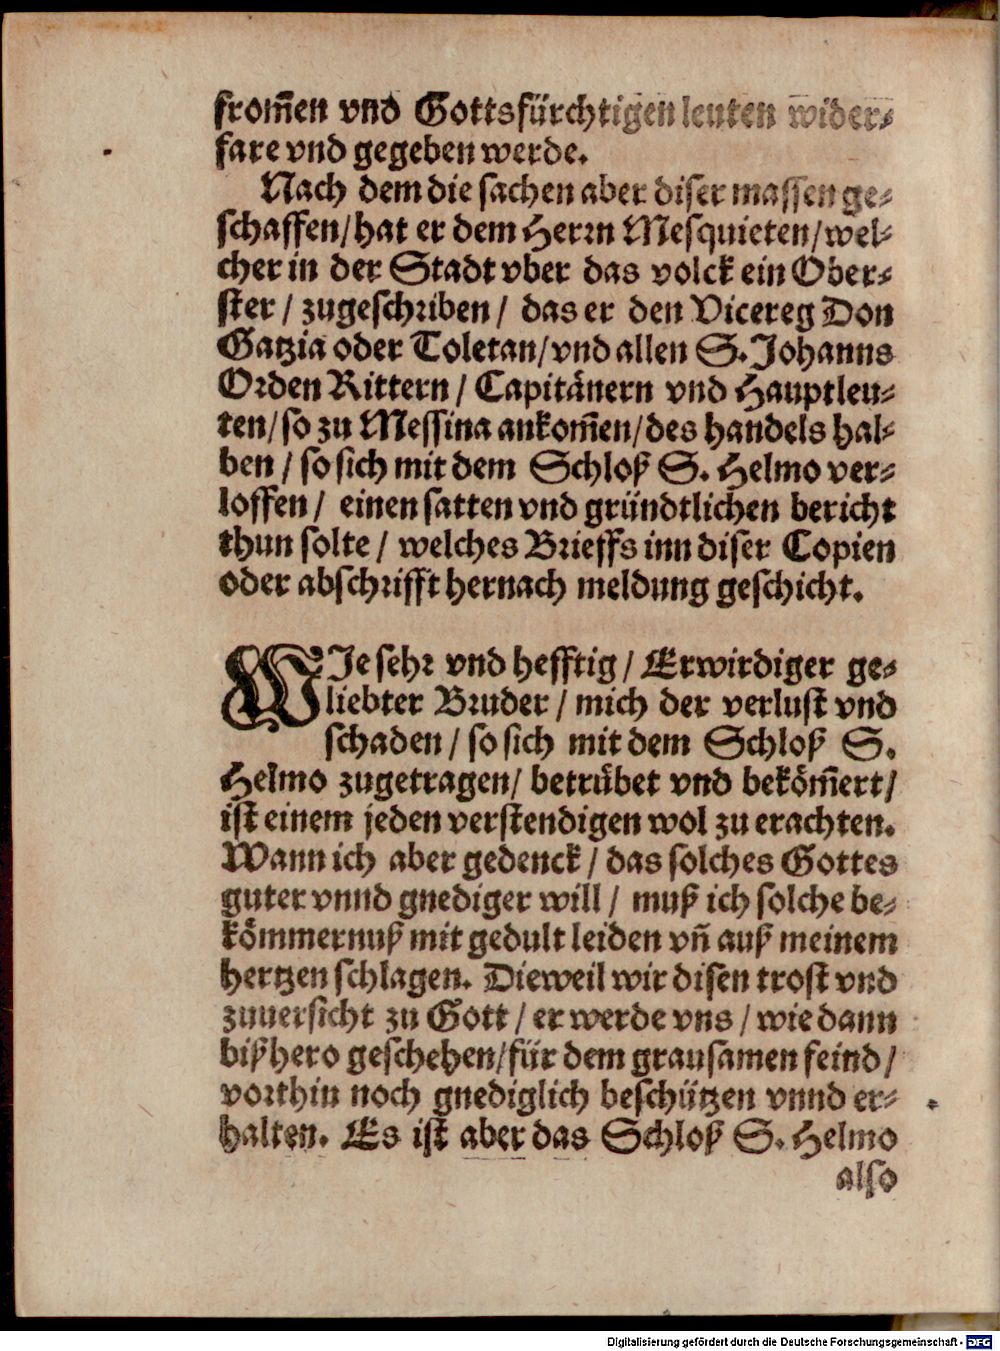 from̃en vnd Gottsfürchtigen leuten wider⸗
fare vnd gegeben werde.
Nach dem die sachen aber diser massen ge⸗
schaffen/hat er dem Herrn Mesquieten/wel⸗
cher in der Stadt vber das volck ein Ober⸗
ster / zugeschriben / das er den Vicereg Don
Gatzia oder Toletan/vnd allen S. Johanns
Orden Rittern / Capitänern vnd Hauptleu⸗
ten/so zu Messina ankom̃en/des handels hal⸗
ben / so sich mit dem Schloß S. Helmo ver⸗
loffen / einen satten vnd gründtlichen bericht
thun solte / welches Brieffs inn diser Copien
oder abschrifft hernach meldung geschicht.
WIe sehr vnd hefftig / Erwirdiger ge⸗
liebter Bruder / mich der verlust vnd
schaden / so sich mit dem Schloß S.
Helmo zugetragen/ betrübet vnd beköm̃ert/
ist einem jeden verstendigen wol zu erachten.
Wann ich aber gedenck / das solches Gottes
guter vnnd gnediger will / muß ich solche be⸗
kömmernuß mit gedult leiden vñ auß meinem
hertzen schlagen. Dieweil wir disen trost vnd
zuuersicht zu Gott / er werde vns / wie dann
bißhero geschehen/für dem grausamen feind /
vorthin noch gnediglich beschützen vnnd er⸗
halten. Es ist aber das Schloß S. Helmo
also
Digitalisierung gefördert durch die Deutsche Forschungsgemeinschaft - DFG